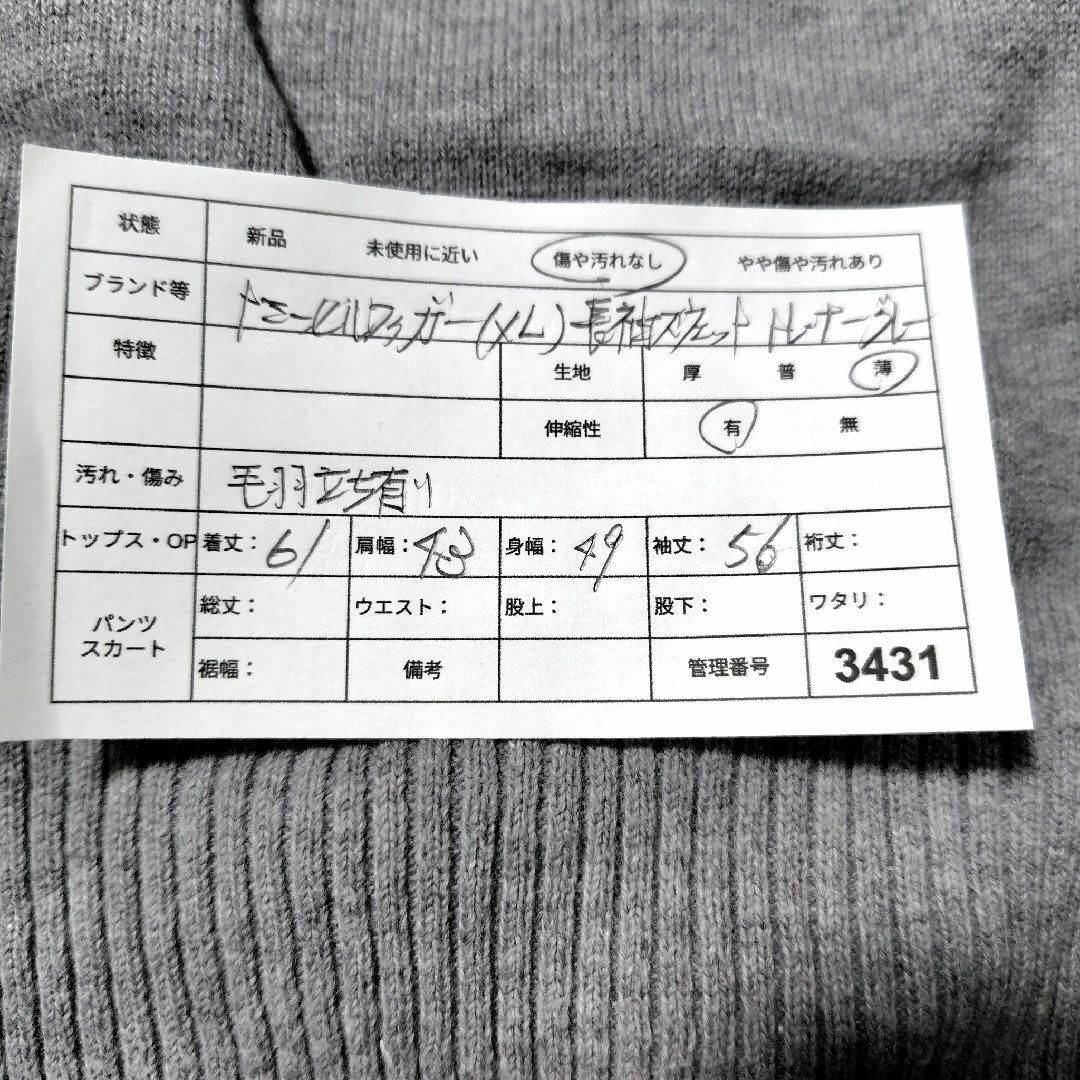 状態 新品 未使用に近い 傷や汚れなし やや傷や汚れあり
ブランド等 トミーヒルフィガー(XL)長袖スウェット トレーナーグレー
特徴 生地 厚 普 薄
伸縮性 有 無
汚れ・傷み 毛羽立ち有り
トップス・OP 着丈:61 肩幅:43 身幅:49 袖丈:56 裄丈:
パンツ スカート 総丈: ウエスト: 股上: 股下: ワタリ:
裾幅: 備考 管理番号 3431